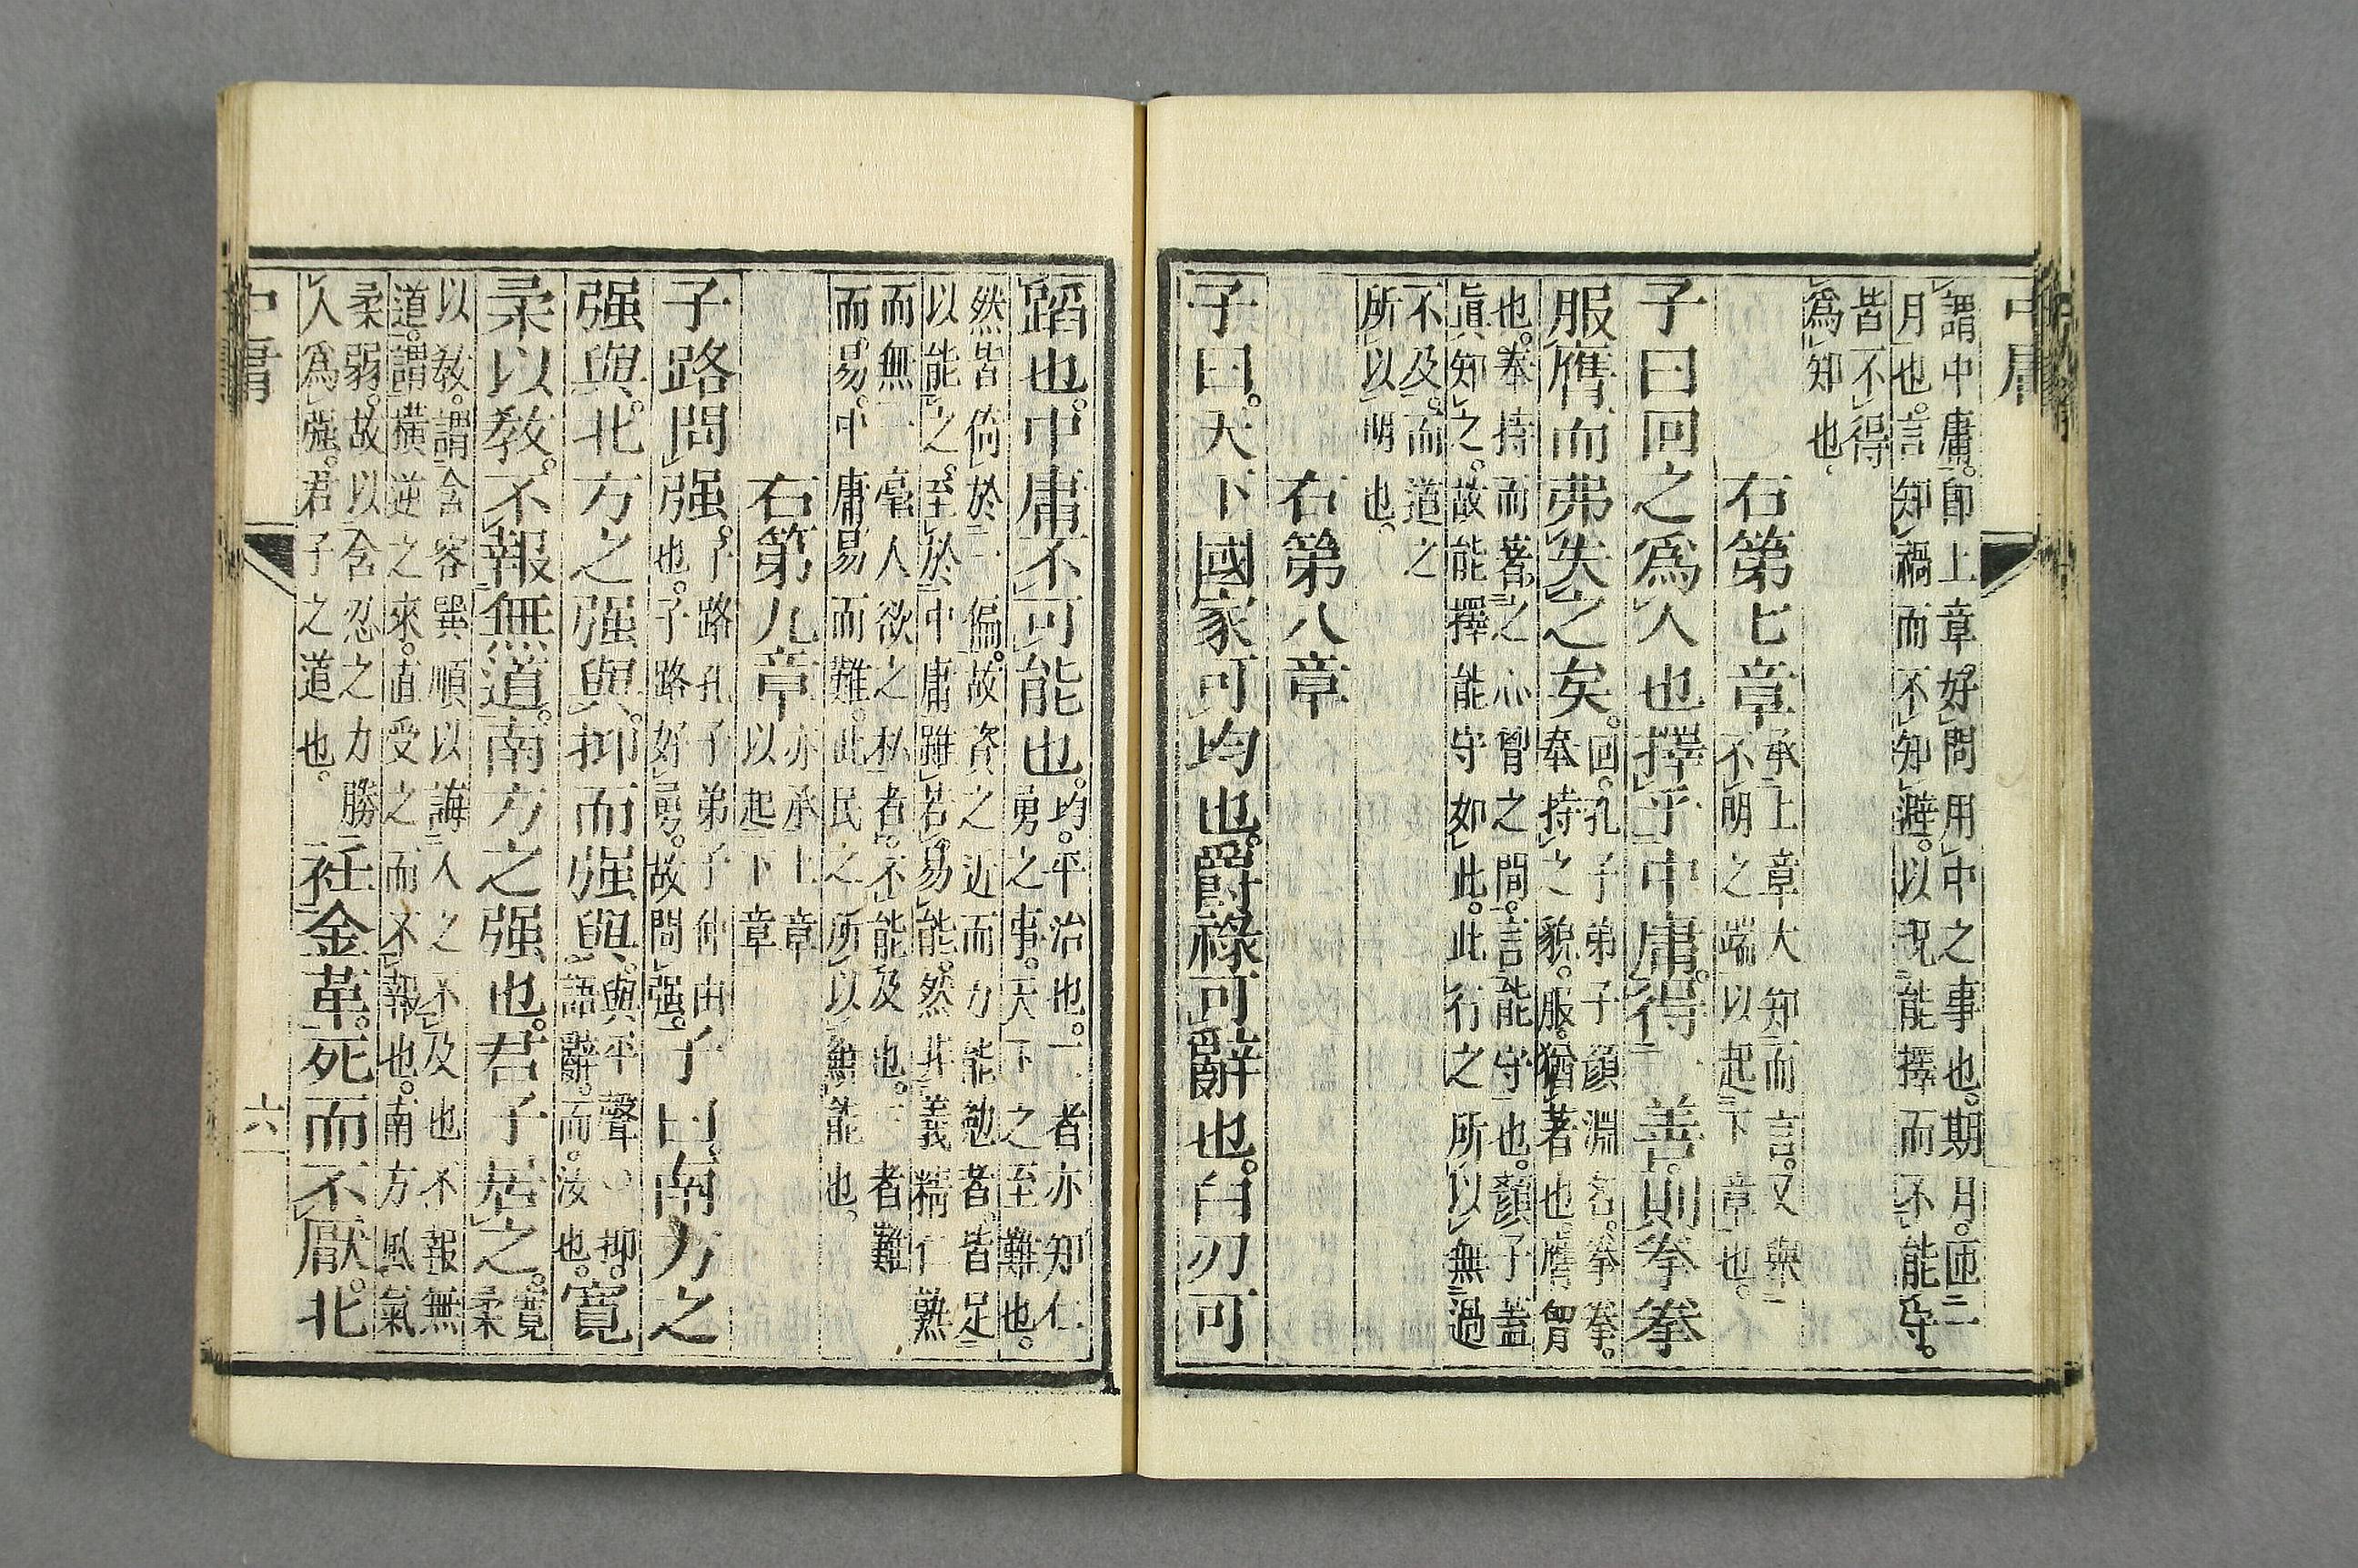 中庸
謂中庸。卽上章好問用中之事也。期月。匝一
月也。言知禍而不知避。以況能擇而不能守。
皆不得
爲知也。
右第七章
承上章大知而言。又擧
不明之端以起下章也。
子曰回之爲人也擇乎中庸。得一善。則拳拳
服膺而弗失之矣。
回。孔子弟子顔淵名。拳拳。
奉持之貌。服。猶著也。膺胷
也。奉持而著之心胷之間。言能守也。顔子蓋
眞知之。故能擇能守如此。此行之所以無過
不及。而道之
所以明也。
右第八章
子曰。天下國家可均也。爵祿可辭也。白刃可
蹈也。中庸不可能也。
均。平治也。三者亦知仁
勇之事。天下之至難也。
然皆倚於一偏。故資之近而力能勉者。皆足
以能之。至於中庸雖若易能。然非義精仁熟
而無一毫人欲之私者。不能及也。三者難
而易。中庸易而難。此民之所以鮮能也。
右第九章
亦承上章
以起下章
子路問强。
子路孔子弟子仲由
也。子路好勇。故問强。
子曰。南方之
强與。北方之强與。抑而强與。
與平聲○抑。
語辭。而。汝也。
寛
柔以敎。不報無道。南方之强也。君子居之。
寛柔
以敎。謂含容巽順以誨人之不及也不報無
道。謂橫逆之來。直受之而不報也。南方風氣
柔弱。故以含忍之力勝
人爲强。君子之道也。
衽金革。死而不厭。北
中庸
六